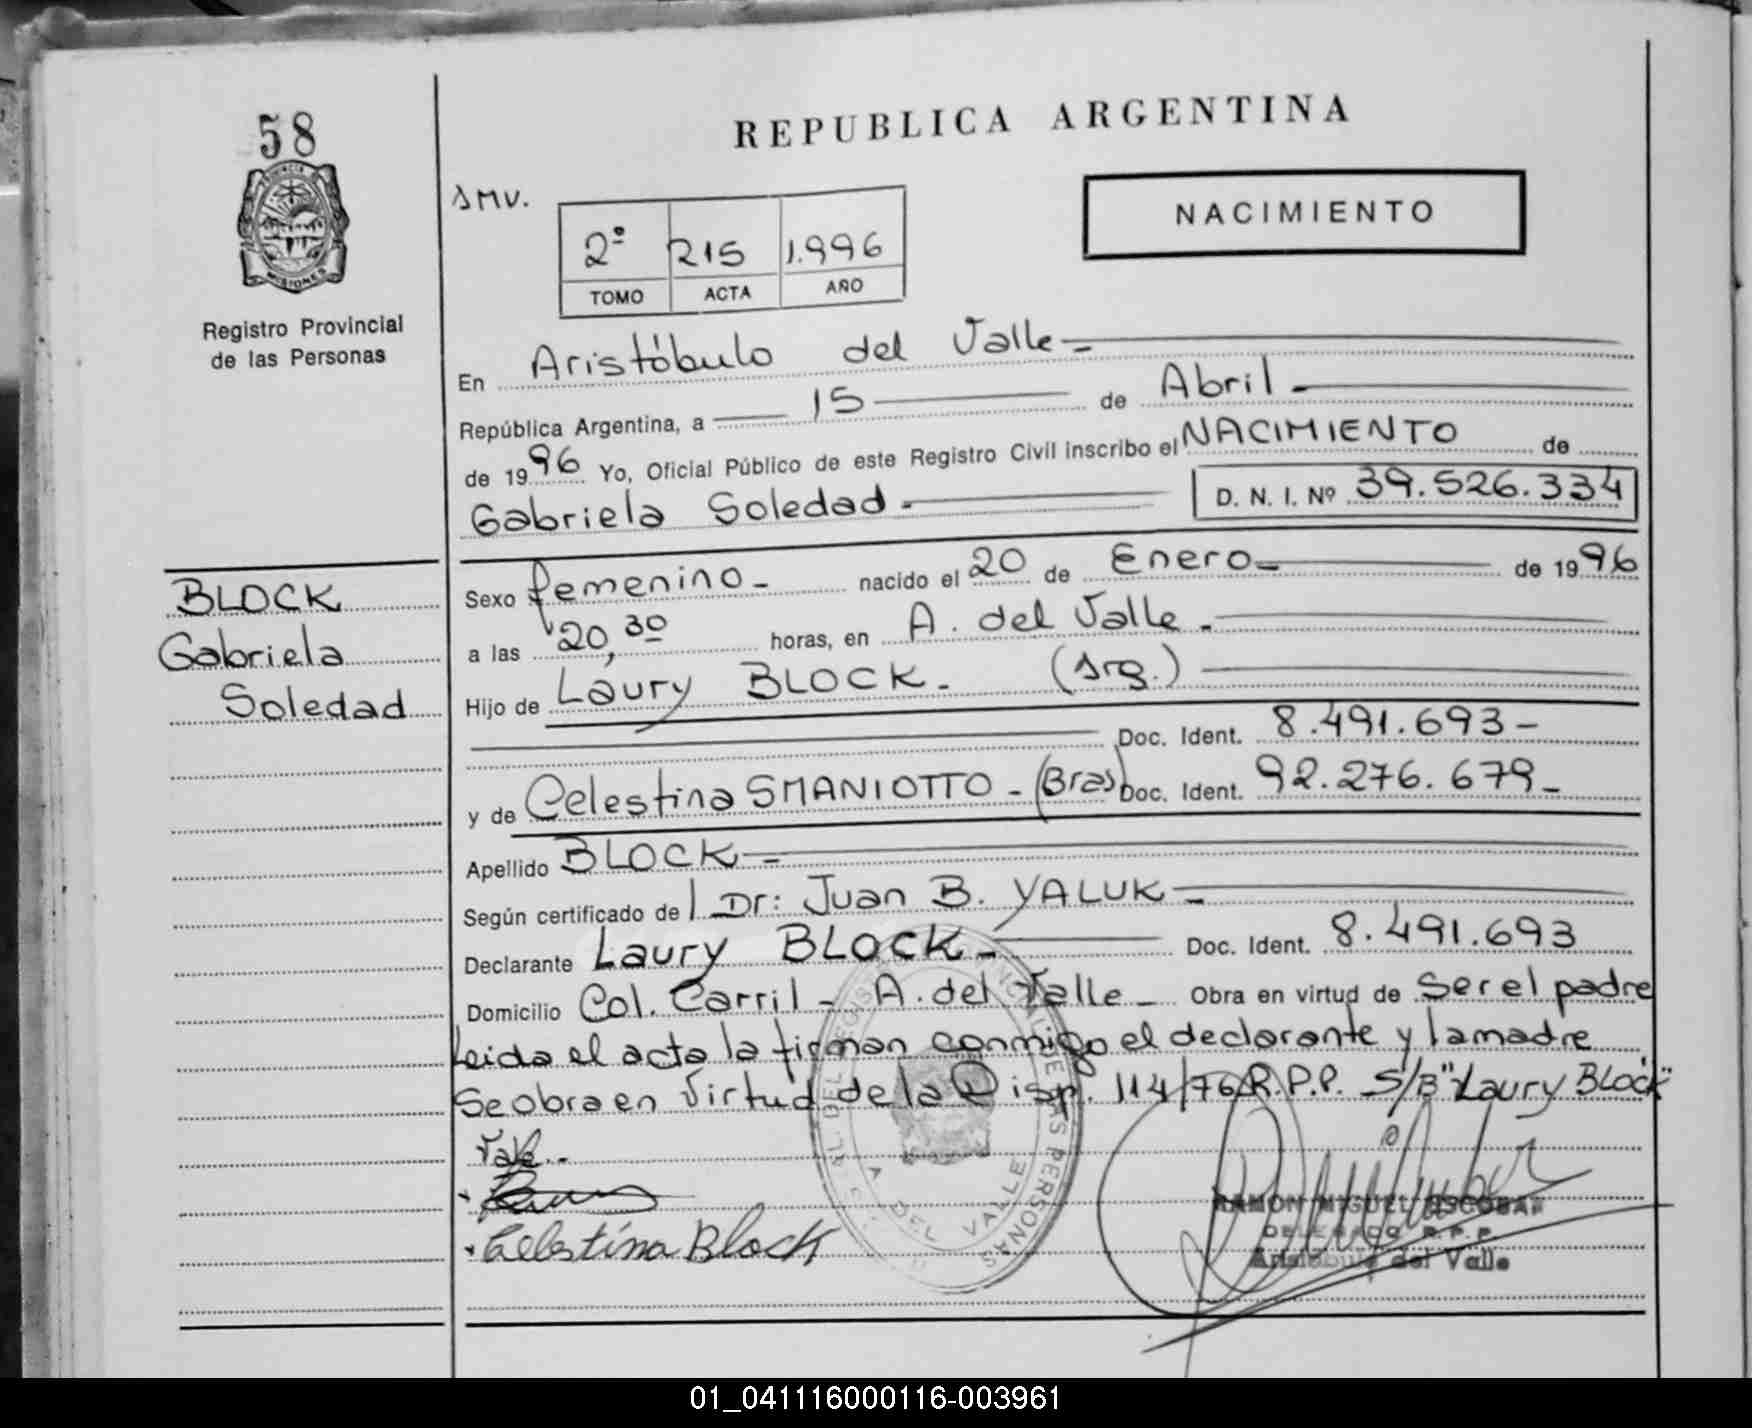 58
REPUBLICA ARGENTINA
PROVINCIA DE
MISIONES
Registro Provincial
de las Personas
SMV.
2º 215 1.996
TOMO ACTA AÑO
NACIMIENTO
En Aristóbulo del Valle -
República Argentina, a 15 de Abril -
de 1996 Yo, Oficial Público de este Registro Civil inscribo el NACIMIENTO de
Gabriela Soledad - D. N. I. Nº 39.526.334
BLOCK
Gabriela
Soledad
Sexo femenino - nacido el 20 de Enero - de 1996
a las 20,30 horas, en A. del Valle -
Hijo de Laury BLOCK - (Arg.)
Doc. Ident. 8.491.693 -
y de Celestina SMANIOTTO - (Bras) Doc. Ident. 92.276.679 -
Apellido BLOCK -
Según certificado de Dr: Juan B. YALUK -
Declarante Laury BLOCK - Doc. Ident. 8.491.693
Domicilio Col. Carril - A. del Valle - Obra en virtud de Ser el padre
Leida el acta la firman conmigo el declarante y la madre
Se obra en Virtud de la Disp. 114/76 R.P.P. S/B "Laury BLOCK"
Vale.-
Celestina Block
A DEL VALLE
RAMON MIGUEL ESCOBAR
DELEGADO R.P.P.
Aristobulo del Valle
01_041116000116-003961